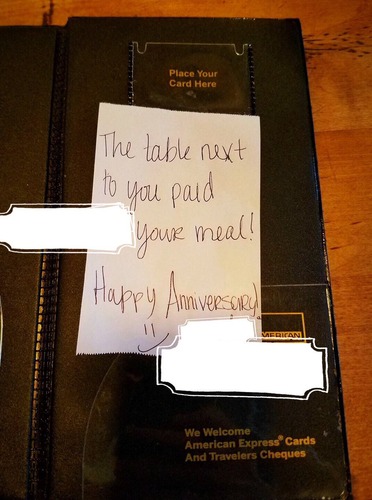 Place Your
Card Here
The table next
to you paid
your meal!
Happy Anniversary!
AMERICAN
We Welcome
American Express® Cards
And Travelers Cheques